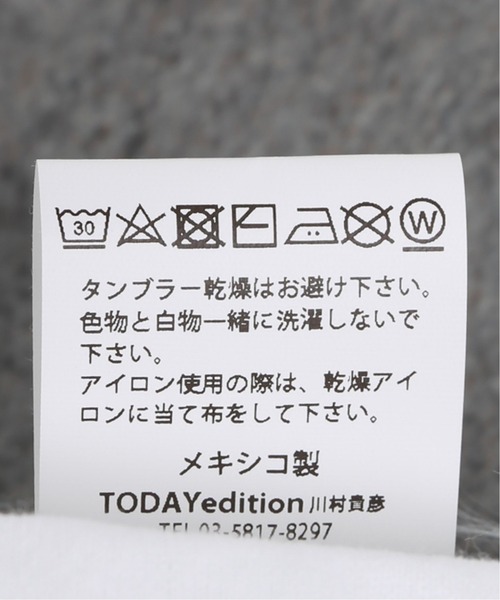 30 W
タンブラー乾燥はお避け下さい。
色物と白物一緒に洗濯しないで
下さい。
アイロン使用の際は、乾燥アイ
ロンに当て布をして下さい。
メキシコ製
TODAYedition 川村貴彦
TEL 03-5817-8297